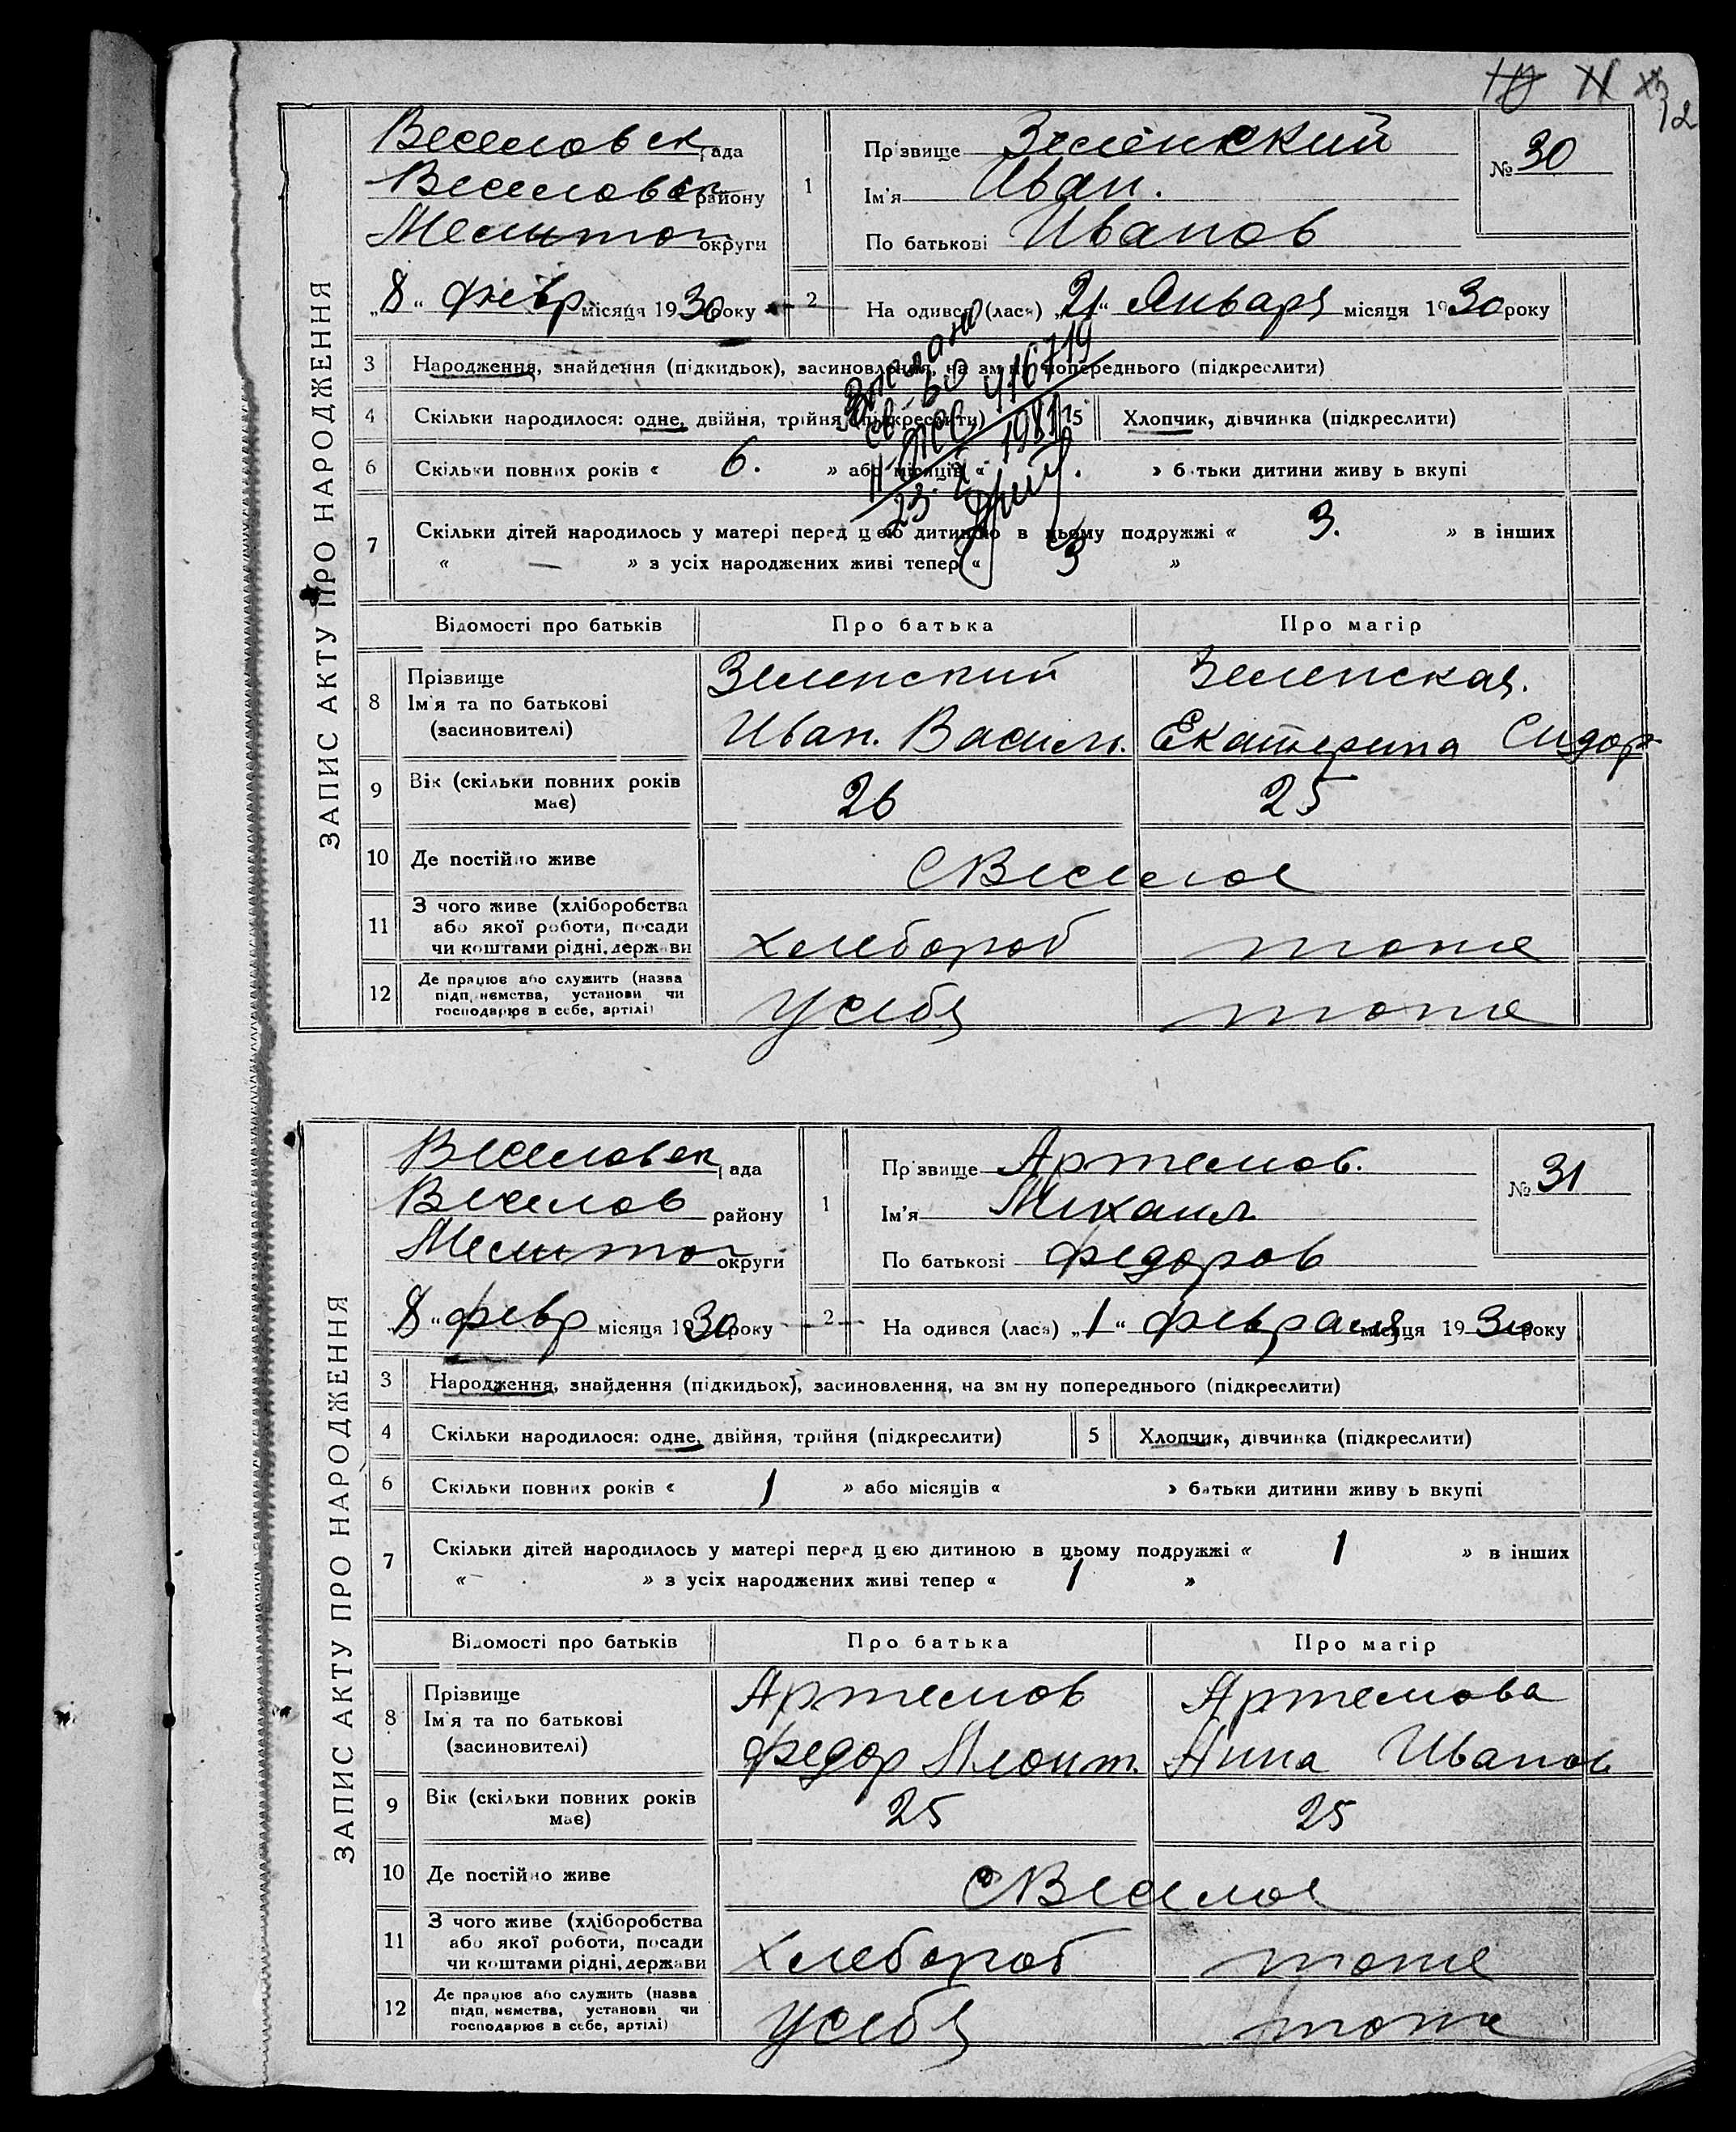 32
ЗАПИС АКТУ ПРО НАРОДЖЕННЯ
Веселовск рада
Веселовск району
Мелитоп округи
„8“ февр місяця 1930 року
1
Прізвище Зеленский
Ім'я Иван.
По батькові Иванов
№ 30
2
Народився (лася) „21“ Января місяця 1930 року
3 Народження, знайдення (підкидьок), засиновлення, на зміну попереднього (підкреслити)
4 Скільки народилося: одне, двійня, трійня (підкреслити)
5 Хлопчик, дівчинка (підкреслити)
6 Скільки повних років « 6. » або місяців « » батьки дитини живуть вкупі
7 Скільки дітей народилось у матері перед цією дитиною в цьому подружжі « 3. » в інших
« — » з усіх народжених живі тепер « 3 »
416719
1981
Відомості про батьків Про батька Про матір
8 Прізвище
Ім'я та по батькові
(засиновителі)
Зеленский
Иван. Василь.
Зеленская.
Екатерина Сидор
9 Вік (скільки повних років має) 26 25
10 Де постійно живе С Веселое
11 З чого живе (хліборобства
або якої роботи, посади
чи коштами рідні, держави
хлебороб тоже
12 Де працює або служить (назва
підприємства, установи чи
господарює в себе, артілі)
у себя тоже
ЗАПИС АКТУ ПРО НАРОДЖЕННЯ
Веселовск рада
Веселов району
Мелитоп округи
„8“ февр місяця 1930 року
1
Прізвище Артемов.
Ім'я Михаил
По батькові Федоров
№ 31
2
Народився (лася) „1“ февраля місяця 1930 року
3 Народження, знайдення (підкидьок), засиновлення, на зміну попереднього (підкреслити)
4 Скільки народилося: одне, двійня, трійня (підкреслити)
5 Хлопчик, дівчинка (підкреслити)
6 Скільки повних років « 1 » або місяців « » батьки дитини живуть вкупі
7 Скільки дітей народилось у матері перед цією дитиною в цьому подружжі « 1 » в інших
« — » з усіх народжених живі тепер « 1 »
Відомості про батьків Про батька Про матір
8 Прізвище
Ім'я та по батькові
(засиновителі)
Артемов
Федор Леонт.
Артемова
Анна Иванов
9 Вік (скільки повних років має) 25 25
10 Де постійно живе С Веселое
11 З чого живе (хліборобства
або якої роботи, посади
чи коштами рідні, держави
хлебороб тоже
12 Де працює або служить (назва
підприємства, установи чи
господарює в себе, артілі)
у себя тоже